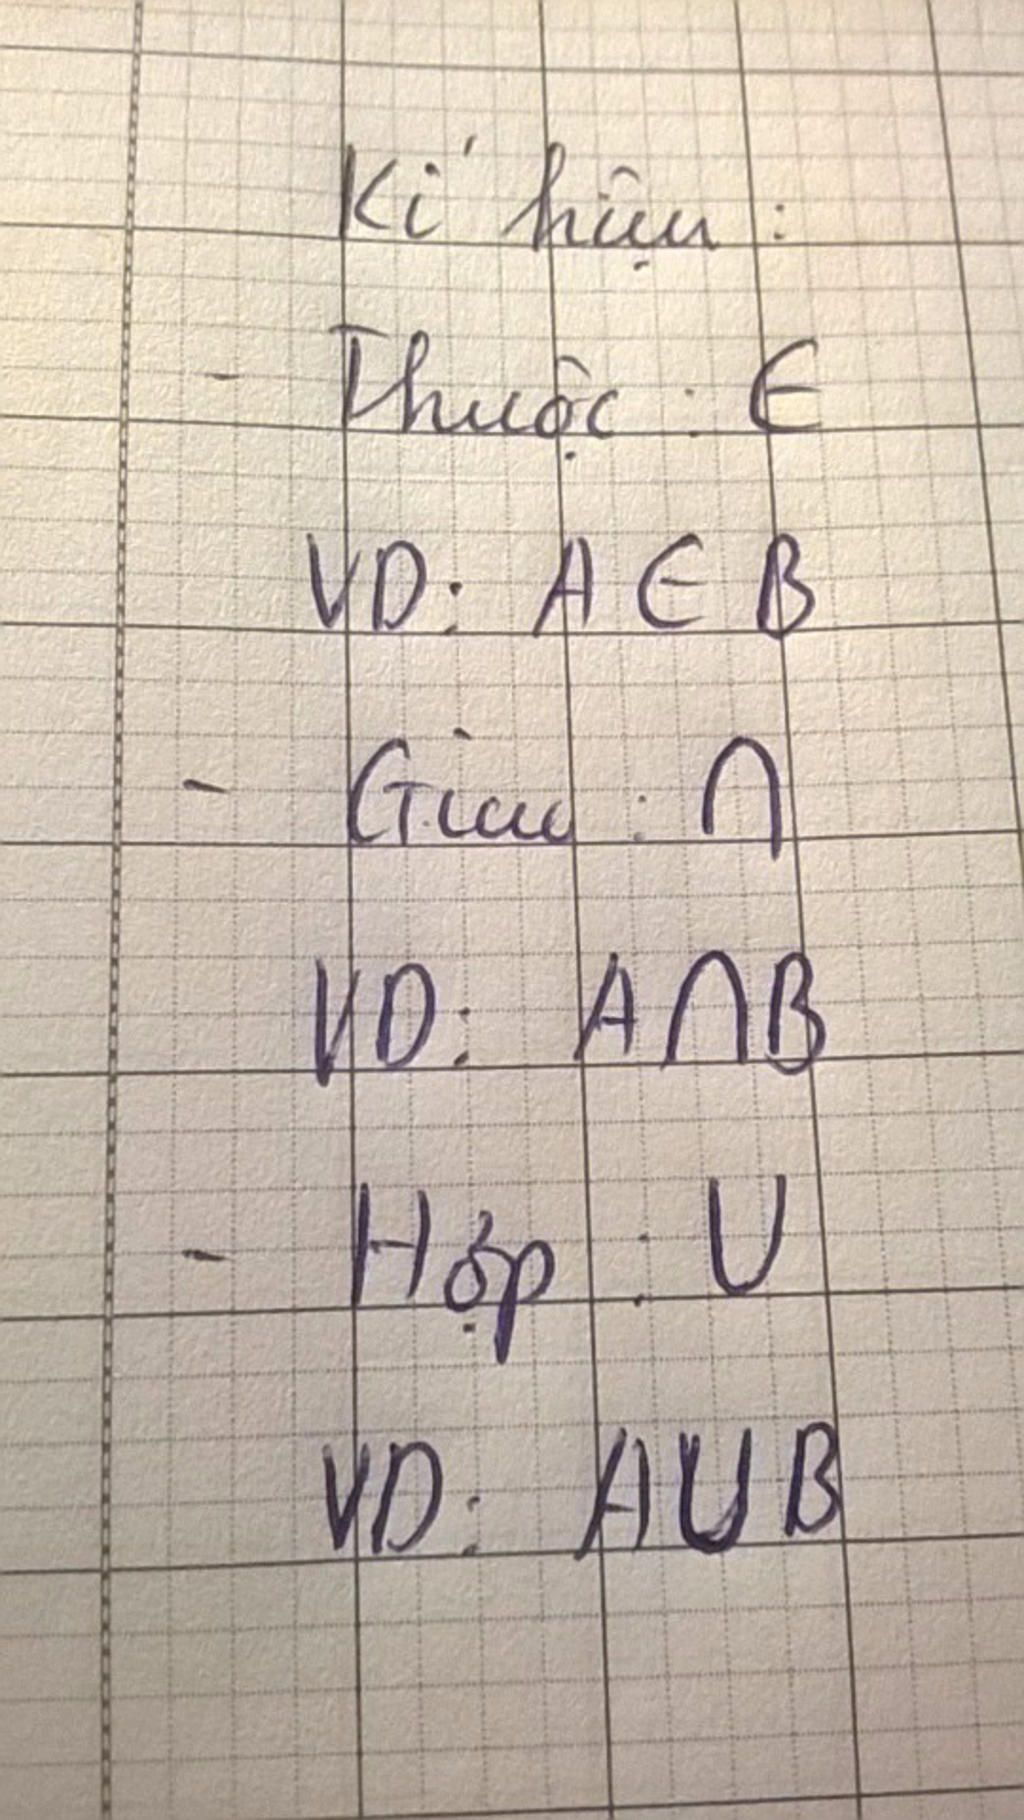 Kí hiệu :
- Thuộc : ∈
VD: A ∈ B
- Giao : ∩
VD: A ∩ B
- Hợp : ∪
VD: A ∪ B